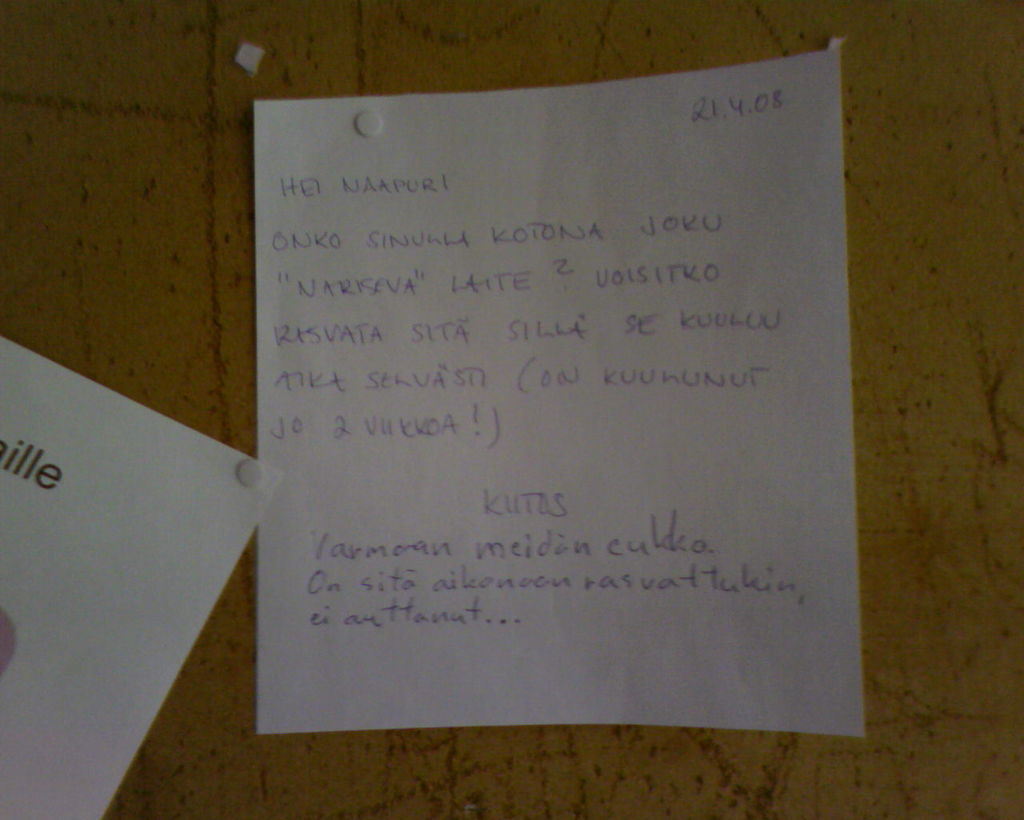 21.4.08
HEI NAAPURI
ONKO SINULLA KOTONA JOKU
"NARISEVA" LAITE? VOISITKO
RASVATA SITÄ SILLÄ SE KUULUU
AIKA SELVÄSTI (ON KUULUNUT
JO 2 VIIKKOA!)
KIITOS
Varmaan meidän eukko.
On sitä aikanaan rasvattukin,
ei auttanut...
aille